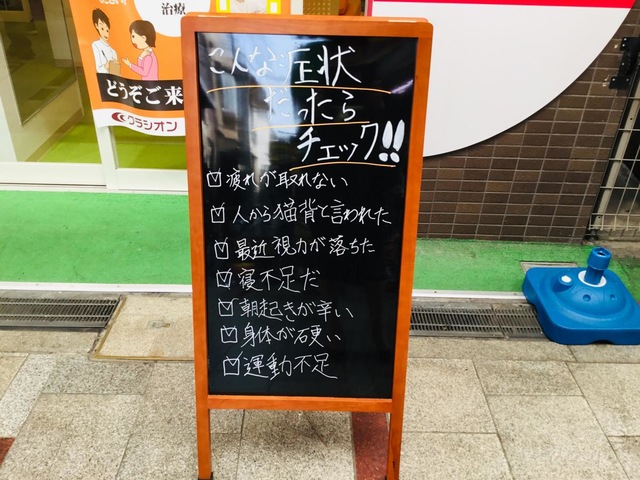 治療
どうぞご来
クラシオン
こんな症状
だったら
チェック!!
☑疲れが取れない
☑人から猫背と言われた
☑最近視力が落ちた
☑寝不足だ
☑朝起きが辛い
☑身体が硬い
☑運動不足